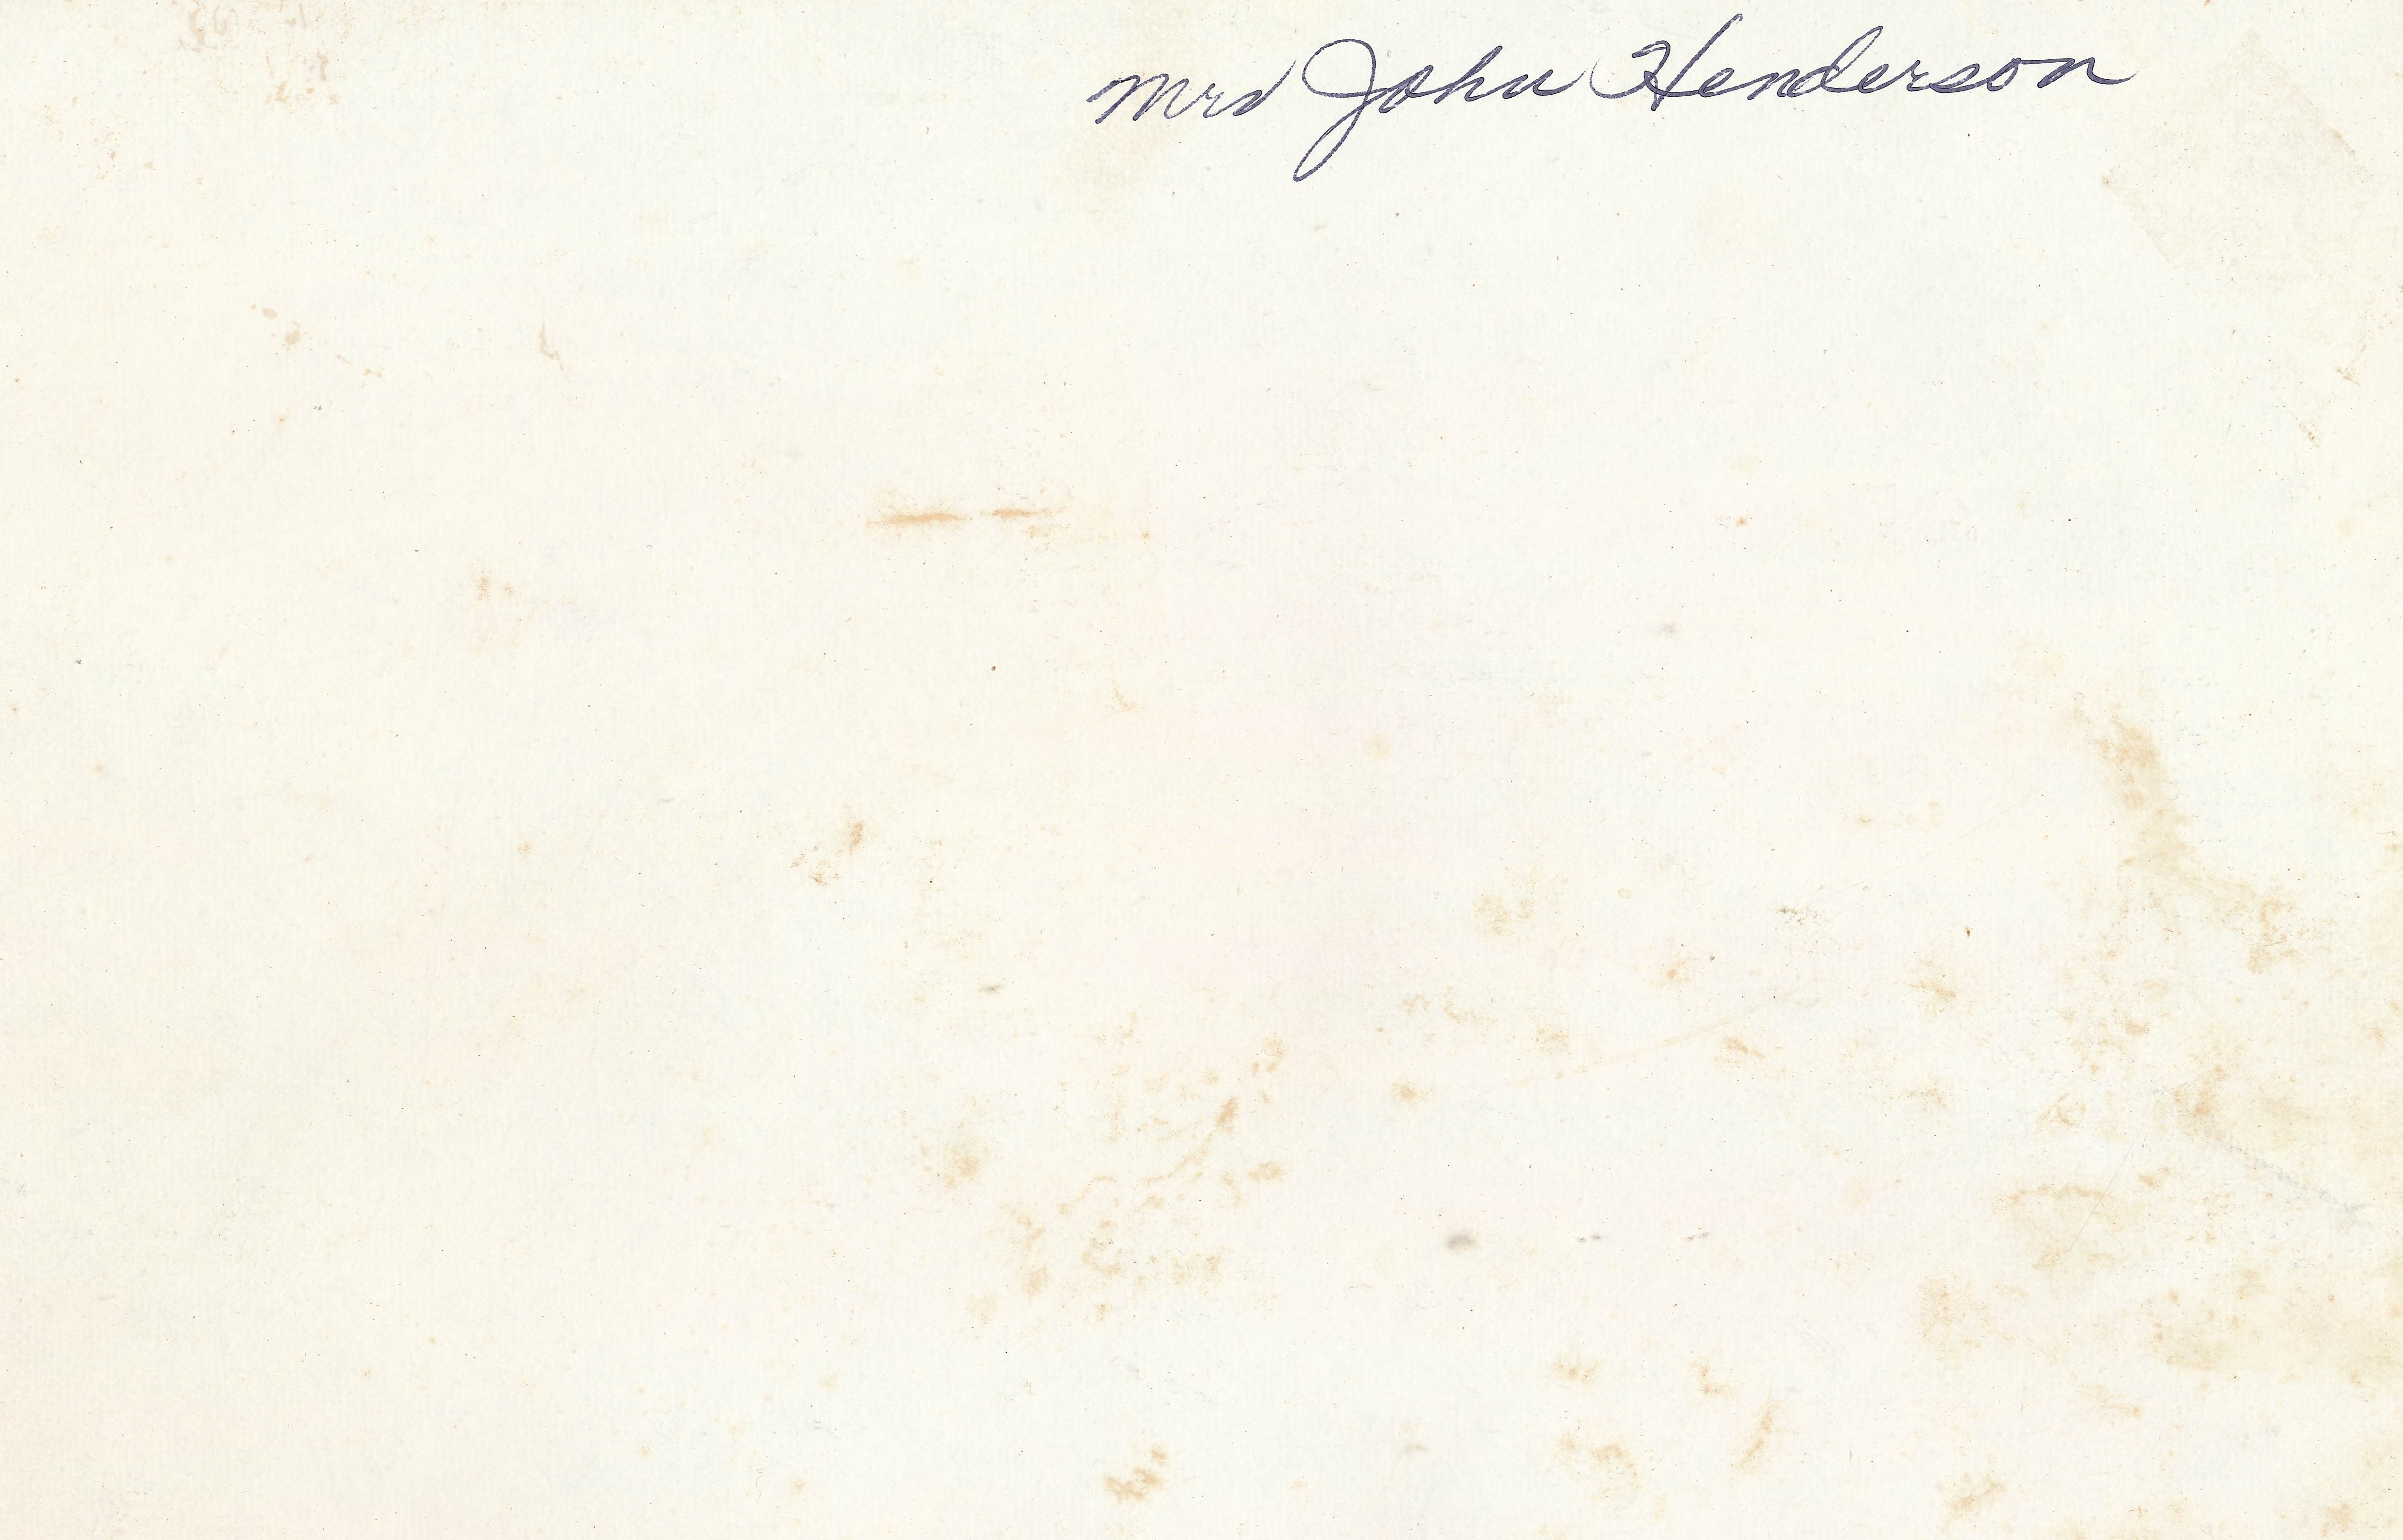 Mrs John Henderson